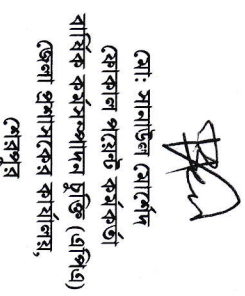 মো: সানাউল মোর্শেদ
ফোকাল পয়েন্ট কর্মকর্তা
বার্ষিক কর্মসম্পাদন চুক্তি (এপিএ)
জেলা প্রশাসকের কার্যালয়,
শেরপুর